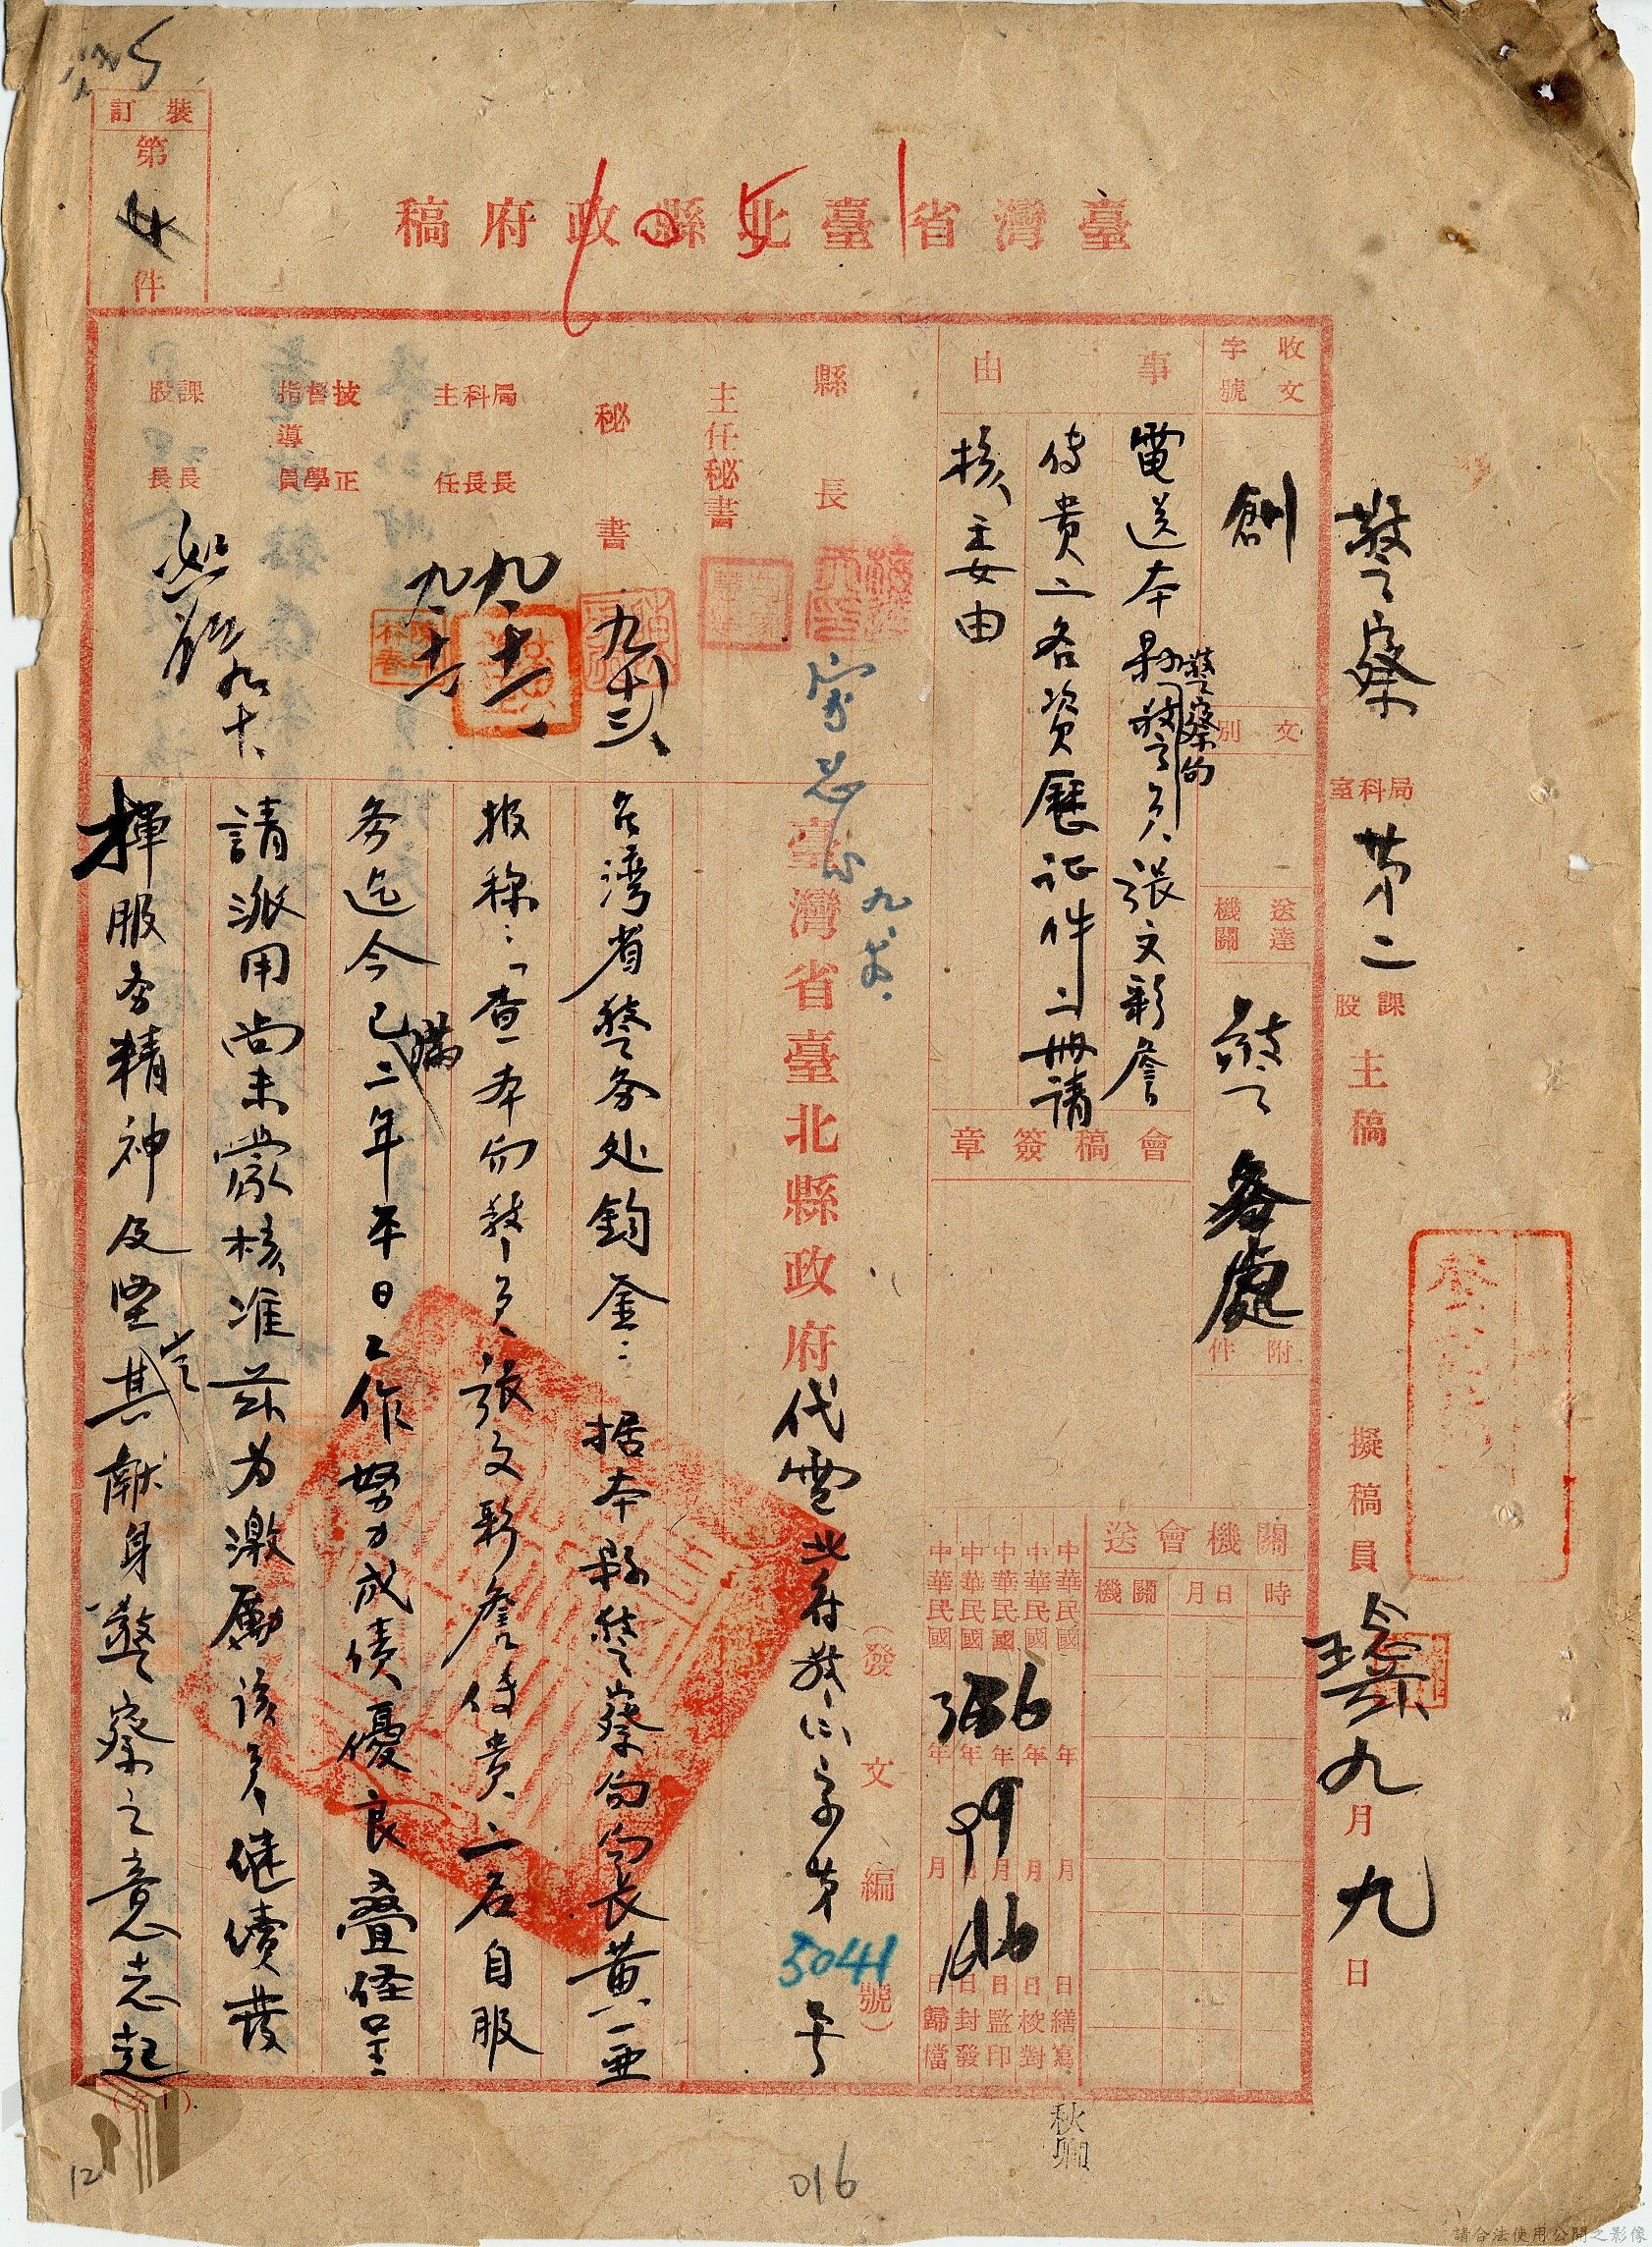 裝訂
第
件
臺灣省臺北縣政府稿
警察 局科室 第二 課股 主稿 擬稿員 九月九日
收文字號 創 文別 送達機關 警務處 附件
事由
電送本縣警察局警員張文彩詹
傳貴二名資歷证件二冊請
核委由
會稿簽章
送會機關
機關 月日 時
中華民國 年 月 日繕寫
中華民國 年 月 日校對
中華民國 年 月 日監印
中華民國 年 月 日封發
中華民國 年 月 日歸檔
36 9 16
縣長
主任秘書
秘書 九、十三
局長 科長 主任 九、十一
技正 督學 指導員
課長 股長 九、十、
(發文編號)
臺灣省臺北縣政府代電北府警人字第5041号
台湾省警务处鈞鉴：据本縣警察局局長黃亚
报称：「查本局警員張文彩詹传贵二名自服
务迄今已滿二年平日工作努力成績優良叠经呈
請派用尚未蒙核准茲为激厲該員继續发
揮服务精神及坚定其献身警察之意志起
(文1).
016
12
請合法使用公開之影像